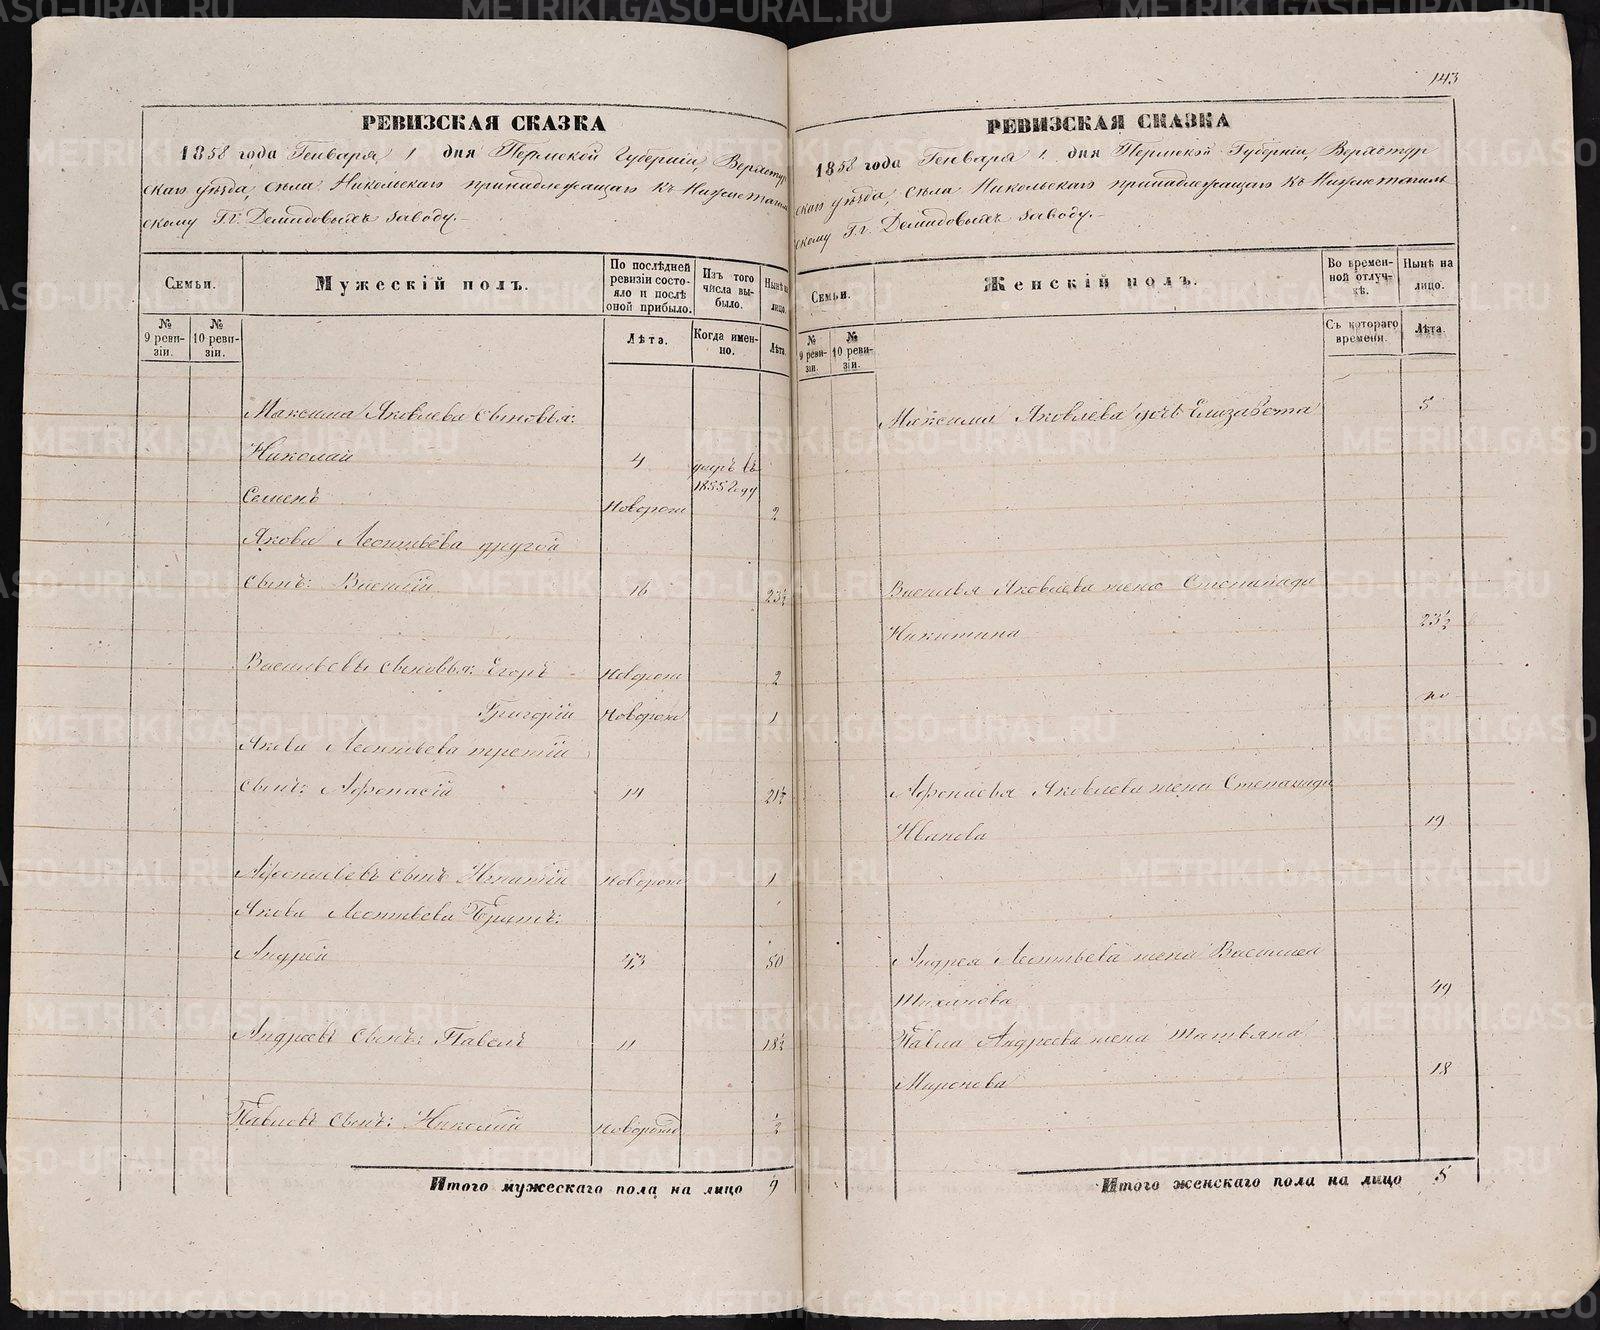 143
РЕВИЗСКАЯ СКАЗКА
1858 года Генваря 1 дня Пермской Губерніи, Верхотур
скаго уѣзда, села Никольскаго принадлежащаго къ Нижнетагиль
скому Г.г. Демидовыхъ заводу.-
Семьи.
Мужескій полъ.
По послѣдней ревизіи состо-
яло и послѣ оной прибыло.
Изъ того числа вы-
было.
Нынѣ на лицо.
№ 9 реви-
зіи.
№ 10 реви-
зіи.
Лѣта.
Когда имен-
но.
Лѣта.
Максима Яковлева сыновья:
Николай 4 умръ въ
1855 году
Семенъ Новорож 2
Якова Леонтьева другой
сынъ: Василій 16 23½
Васильевы сыновья: Егоръ Новорож 2
Григорій Новорож 1
Якова Леонтьева третій
сынъ: Афонасій 14 21½
Афонасьевъ сынъ Игнатій Новорож 1
Якова Леонтьева Братъ:
Андрей 43 50
Андреевъ сынъ: Павелъ 11 18½
Павловъ сынъ: Николай Новорожд ½
Итого мужескаго пола на лицо 9
РЕВИЗСКАЯ СКАЗКА
1858 года Генваря 1 дня Пермской Губерніи, Верхотур
скаго уѣзда, села Никольскаго принадлежащаго къ Нижнетагиль
скому Г.г. Демидовыхъ заводу.-
Семьи.
Женскій полъ.
Во времен-
ной отлуч-
кѣ.
Нынѣ на лицо.
№ 9 реви-
зіи.
№ 10 реви-
зіи.
Съ котораго времени.
Лѣта.
Максима Яковлева дочь Елизавета 5
Василья Яковлева жена Степанида
Никитина 23½
Афонасья Яковлева жена Степанида
Иванова 19
Андрея Леонтьева жена Василиса
Тиханова 49
Павла Андреева жена Татьяна
Миронова 18
Итого женскаго пола на лицо 5
METRIKI.GASO-URAL.RU